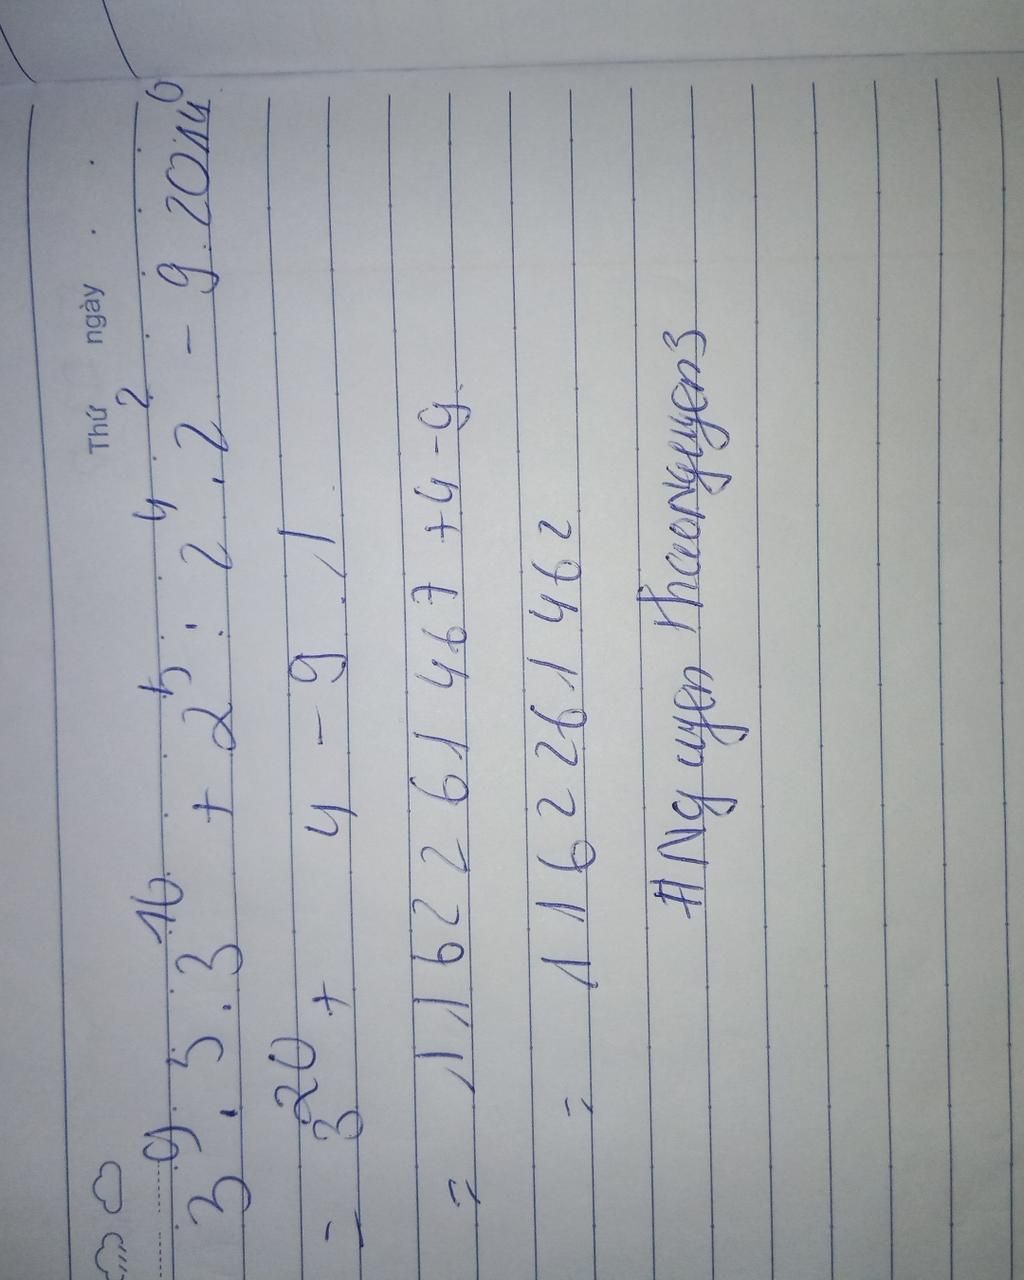 Thứ ngày
3⁹ . 5 . 3¹⁶ + 2⁵ : 2⁴ . 2² - 9 . 2014⁰
= 3²⁰ + 4 - 9 . 1
= 11622 61 467 + 4 - 9
= 1162261462
# Nguyen ThaoNguyen3